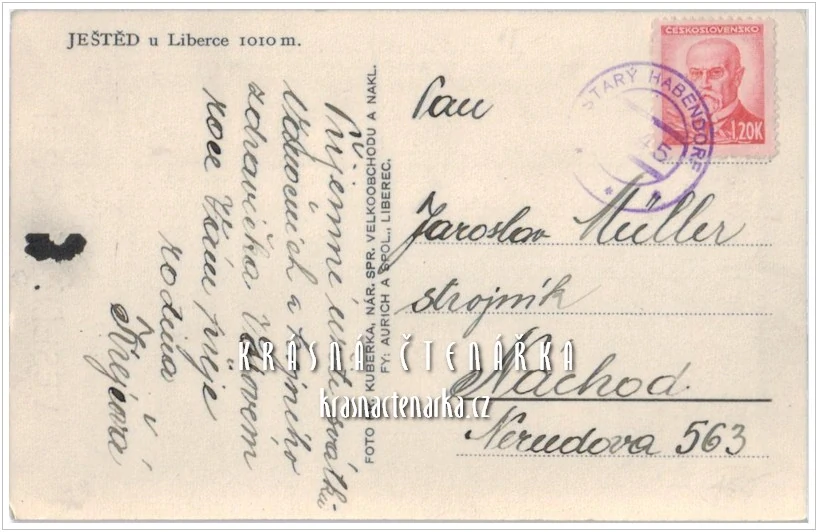 JEŠTĚD u Liberce 1010 m.
Příjemné svátků
Vánočních a hojného
zdravíčka v Novém
roce Vám přeje
rodina
Krejcova
FOTO KUBERKA, NÁR. SPR. VELKOOBCHODU A NAKL.
FY: AURICH A SPOL., LIBEREC.
ČESKOSLOVENSKO
1.20K
STARÝ HABENDORF
45
Pan
Jaroslav Müller
strojník
Náchod
Nerudova 563
KRÁSNÁ ČTENÁŘKA
krasnactenarka.cz